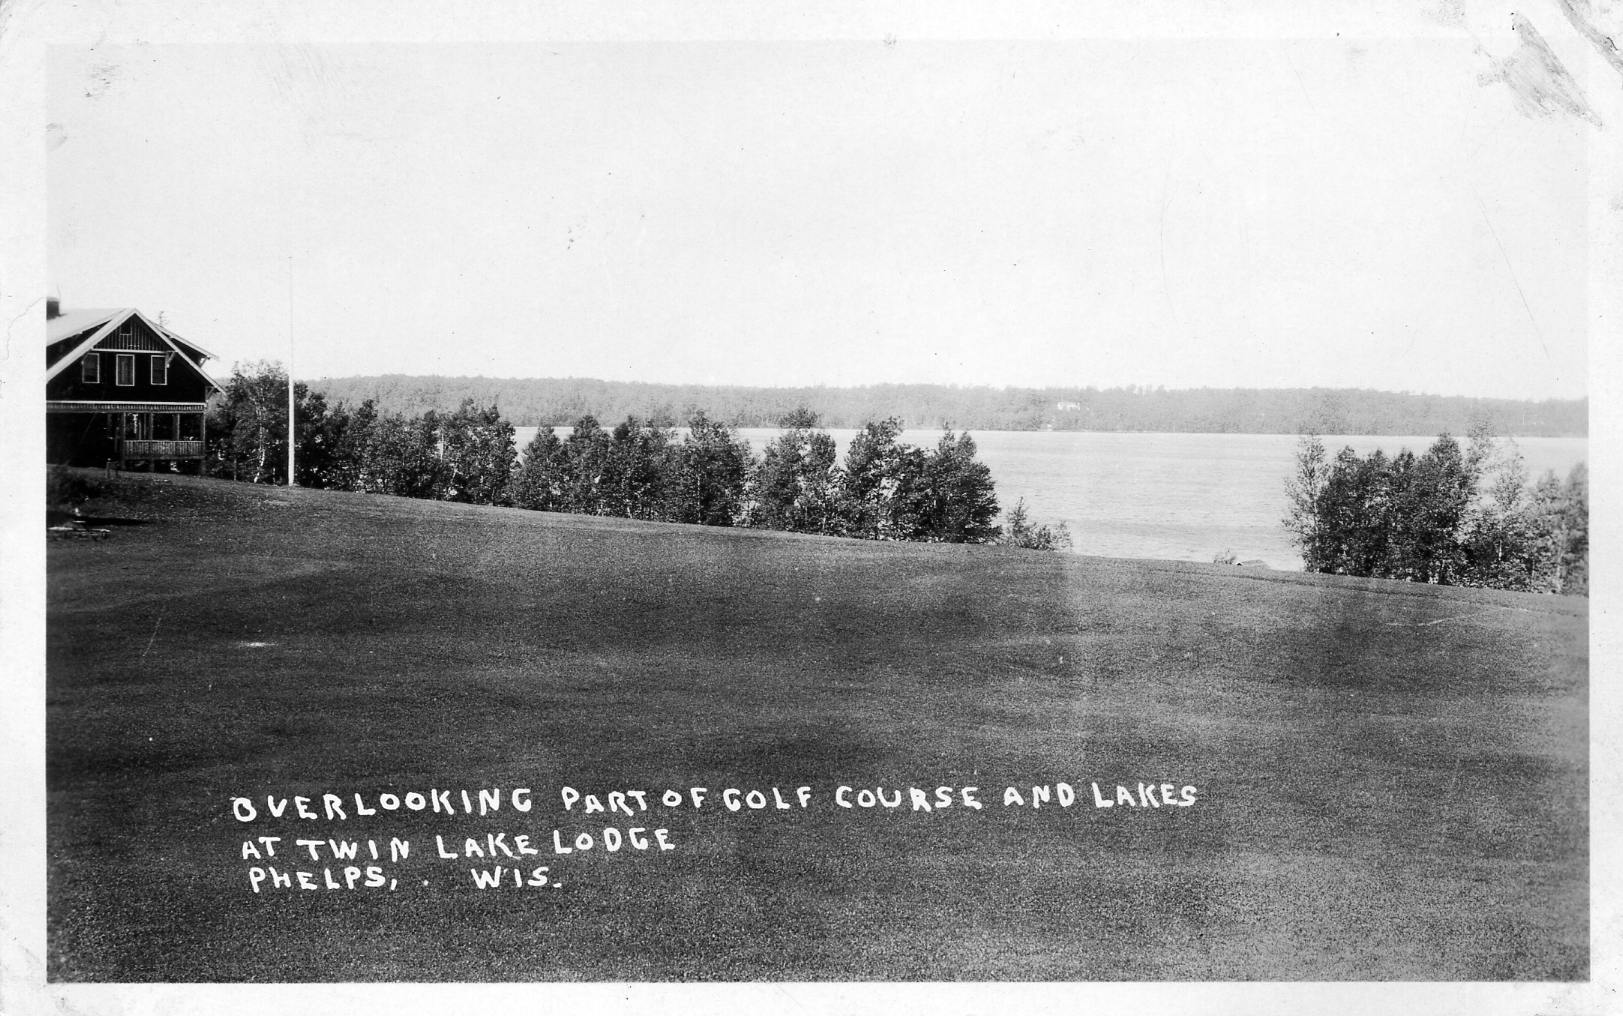 OVERLOOKING PART OF GOLF COURSE AND LAKES
AT TWIN LAKE LODGE
PHELPS, . WIS.